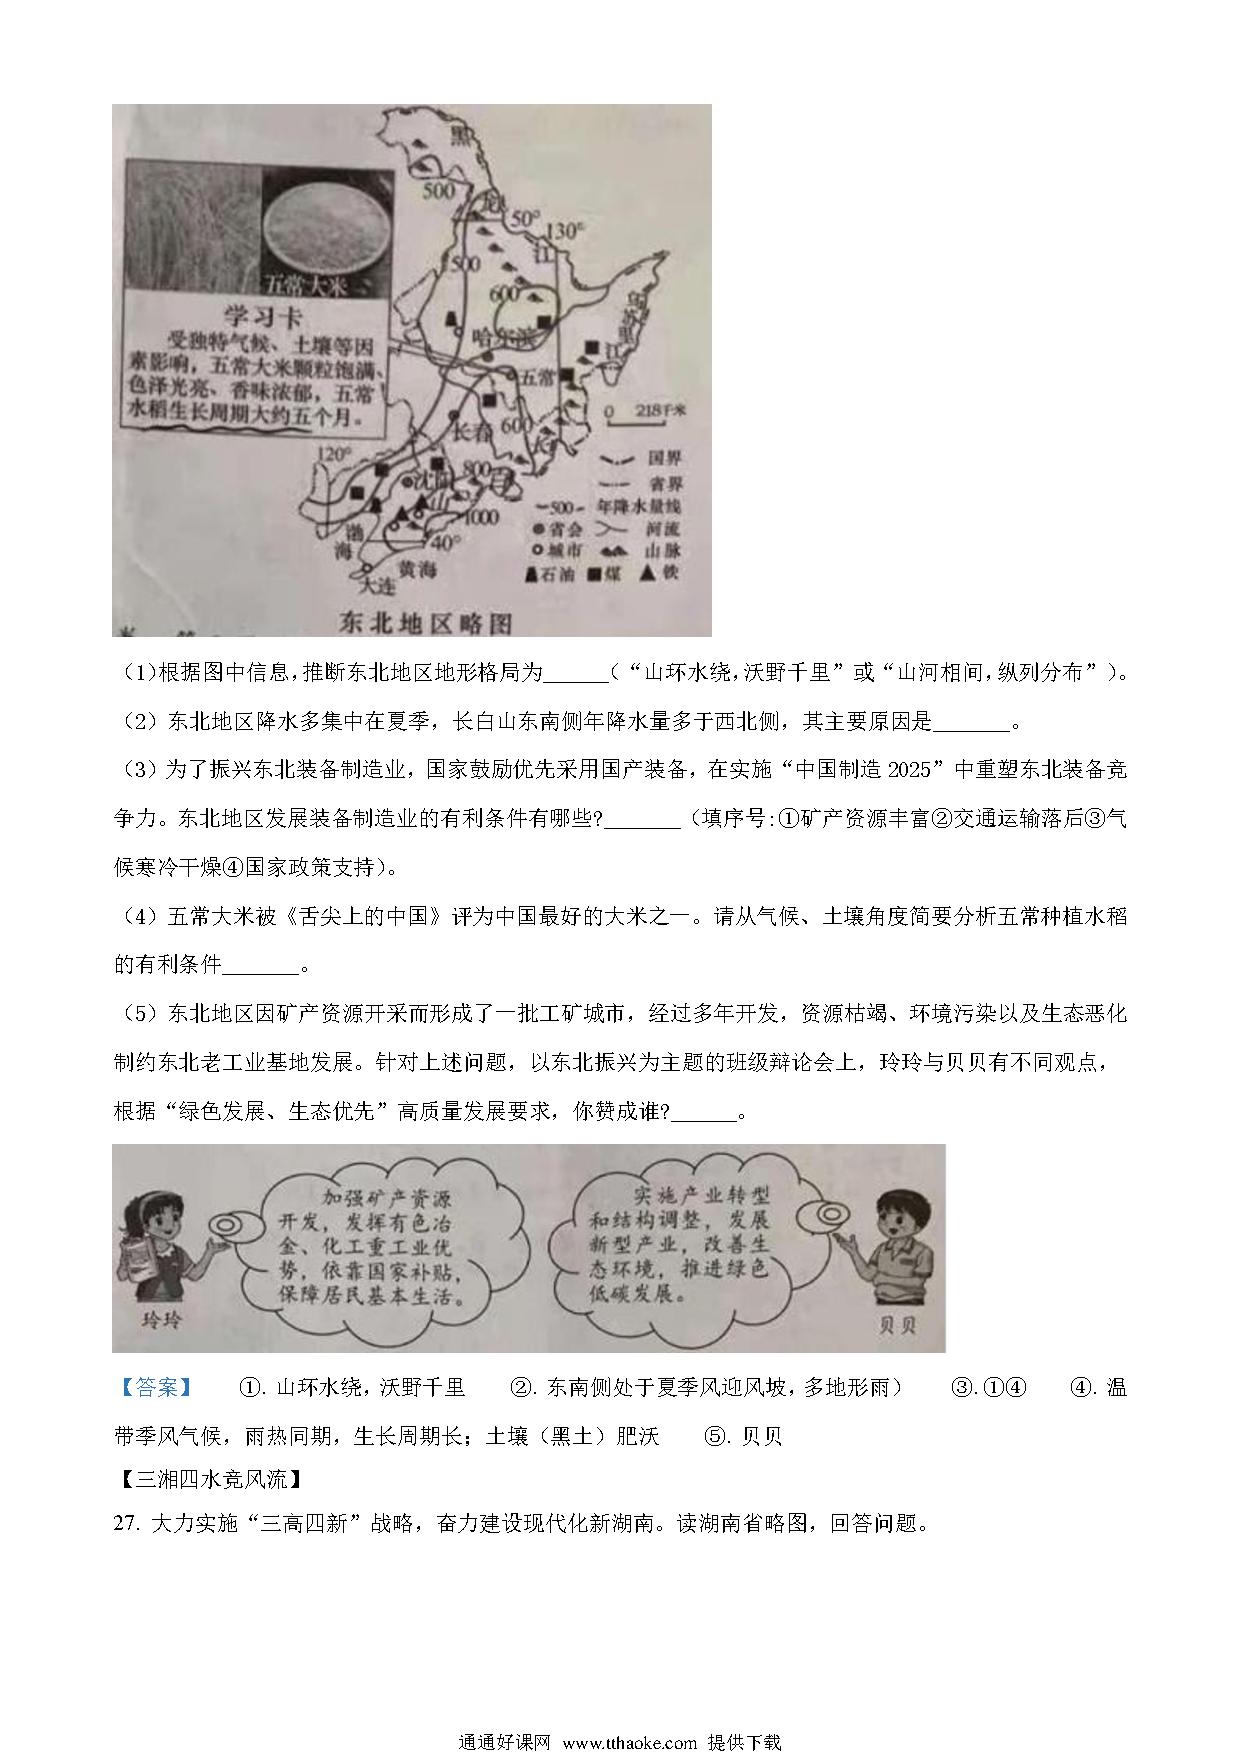 黑
500
龙
50°
130°
江
500
600
乌
苏
里
江
五常大米
学习卡
受独特气候、土壤等因
素影响，五常大米颗粒饱满、
色泽光亮、香味浓郁，五常
水稻生长周期大约五个月。
哈尔滨
五常
0 218千米
长春
600
长
120°
沈阳
800
白
山
1000
渤
海
40°
黄海
大连
国界
省界
500 年降水量线
省会 河流
城市 山脉
石油 煤 铁
东北地区略图
（1）根据图中信息，推断东北地区地形格局为______（“山环水绕，沃野千里”或“山河相间，纵列分布”）。
（2）东北地区降水多集中在夏季，长白山东南侧年降水量多于西北侧，其主要原因是_______。
（3）为了振兴东北装备制造业，国家鼓励优先采用国产装备，在实施“中国制造 2025”中重塑东北装备竞
争力。东北地区发展装备制造业的有利条件有哪些?_______（填序号:①矿产资源丰富②交通运输落后③气
候寒冷干燥④国家政策支持）。
（4）五常大米被《舌尖上的中国》评为中国最好的大米之一。请从气候、土壤角度简要分析五常种植水稻
的有利条件_______。
（5）东北地区因矿产资源开采而形成了一批工矿城市，经过多年开发，资源枯竭、环境污染以及生态恶化
制约东北老工业基地发展。针对上述问题，以东北振兴为主题的班级辩论会上，玲玲与贝贝有不同观点，
根据“绿色发展、生态优先”高质量发展要求，你赞成谁?______。
加强矿产资源
开发，发挥有色冶
金、化工重工业优
势，依靠国家补贴，
保障居民基本生活。
玲玲
实施产业转型
和结构调整，发展
新型产业，改善生
态环境，推进绿色
低碳发展。
贝贝
【答案】 ①. 山环水绕，沃野千里 ②. 东南侧处于夏季风迎风坡，多地形雨） ③.①④ ④. 温
带季风气候，雨热同期，生长周期长；土壤（黑土）肥沃 ⑤. 贝贝
【三湘四水竞风流】
27. 大力实施“三高四新”战略，奋力建设现代化新湖南。读湖南省略图，回答问题。
通通好课网 www.tthaoke.com 提供下载